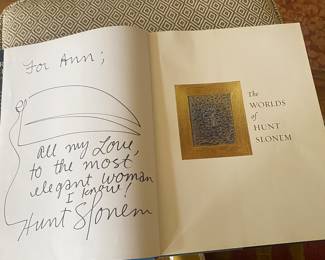 For Ann;
All my Love,
to the most
elegant woman
I know!
Hunt Slonem
The
WORLDS
of
HUNT
SLONEM